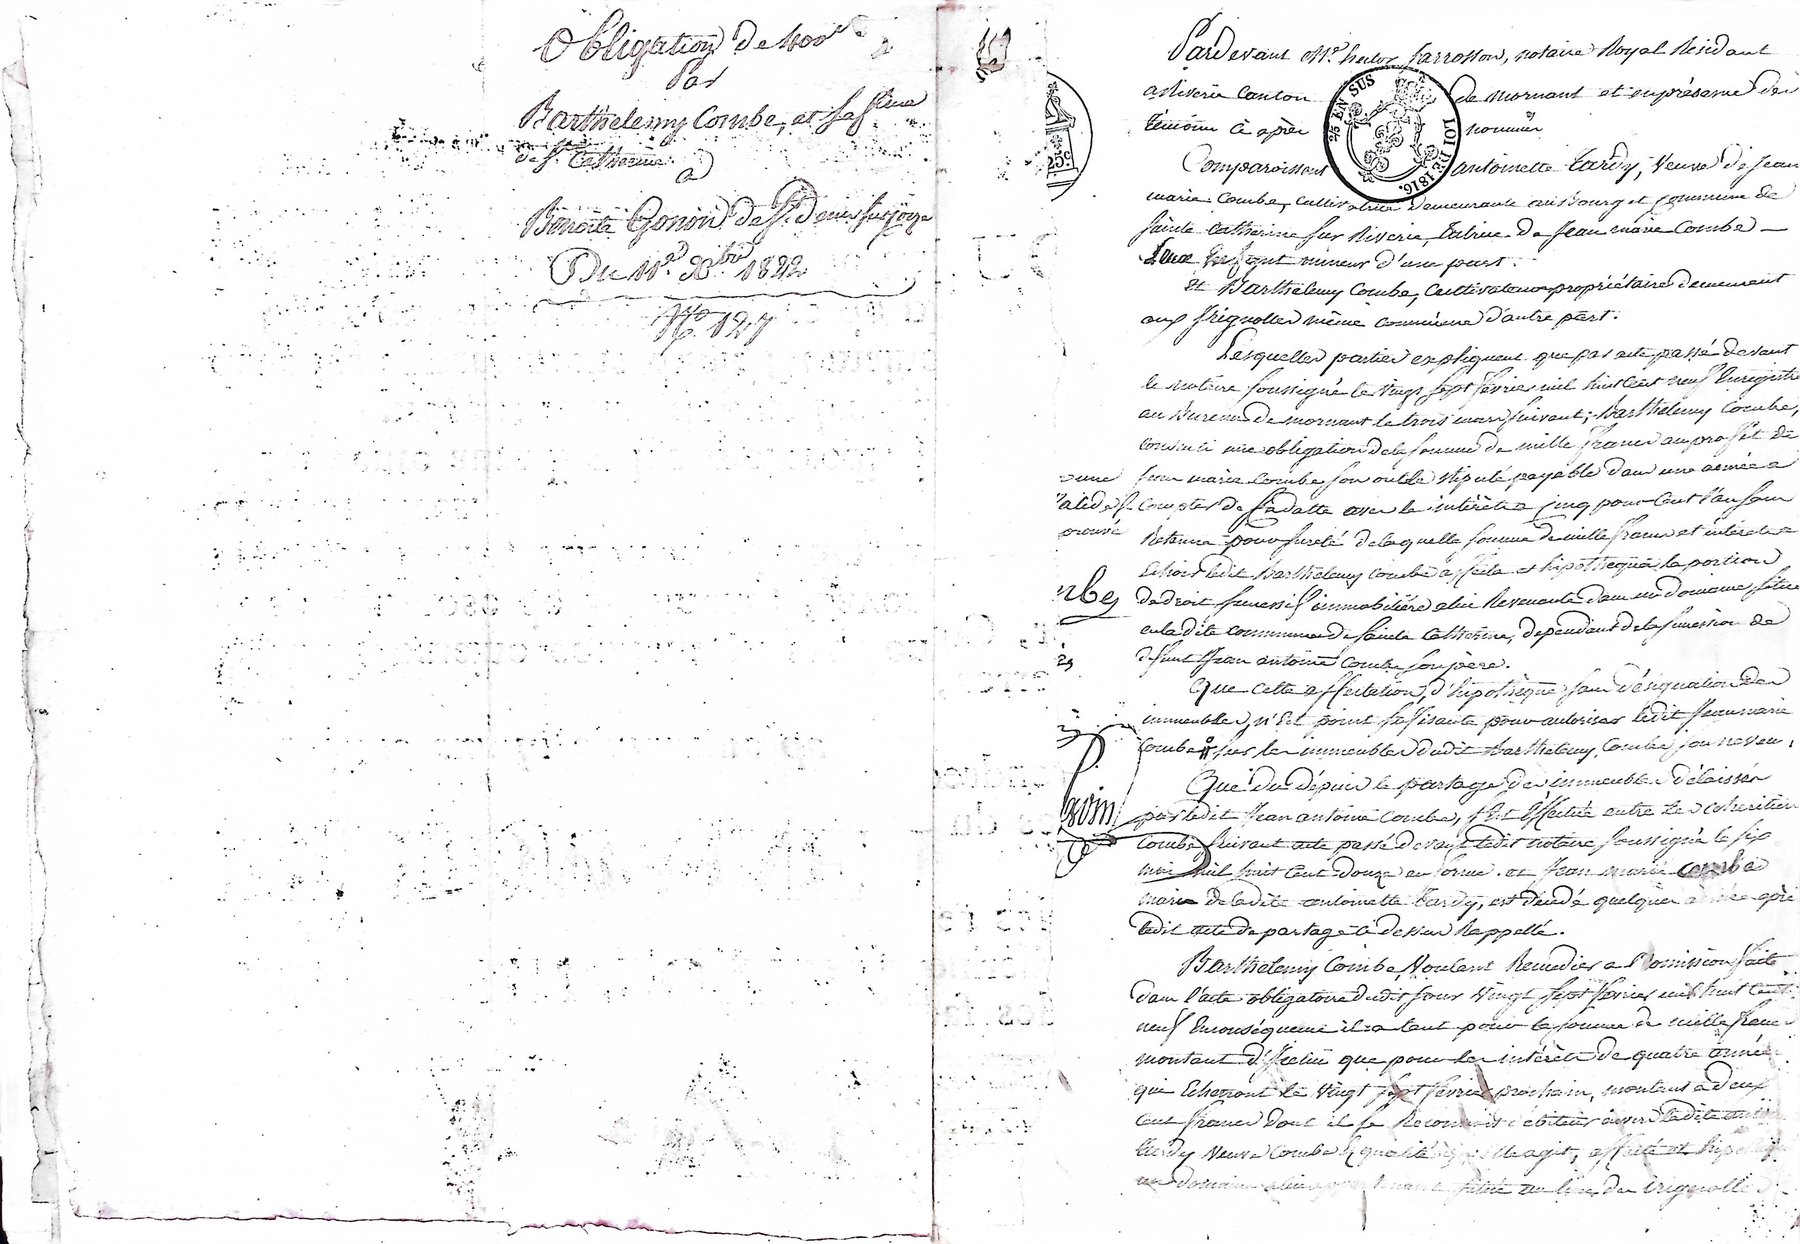 Obligation de 400
Par
Barthelemy Combe, et sa femme
de St. Catherine
a
Benoite Gonon de St. Denis sur Coize
Du 11. Xbre 1822
No. 127
Pardevant Me. hector farrosson, notaire Royal Résidant
a Riverie Canton de mornant et en présence des
témoins ci après nommés
25 EN SUS
LOI DE 1816.
25c
Comparoissent antoinette tardy, Veuve de Jean
marie Combe, cultivatrice demeurante au Bourg et commune de
Sainte Catherine sur Riverie, tutrice de Jean marie Combe
enfant mineur d'une part.
et Barthelemy Combe, Cultivateur propriétaire demeurant
aux frignolles même commune d'autre part.
Lesquelles parties expliquent que par acte passé devant
le notaire soussigné le Vingt sept février mil huit cent neuf Enregistré
au Bureau de mornant le trois mars suivant; Barthelemy Combe,
Consenti une obligation de la somme de mille francs au profit de
Jean marie Combe son oncle stipulé payable dans une année a
Compter de sa datte avec le intérêt a cinq pour Cent l'an sans
Retenue pour sureté de laquelle somme de mille francs et intérêts a
Echoir ledit Barthelemy Combe a affecté et hipothequé la portion
de droit successif immobilière a lui Revenante dans un domaine situé
en la dite commune de Sainte Catherine, dependant de la succession de
defunt Jean antoine Combe son père.
Que cette affectation d'hipothèque sans désignation des
immeubles, n'est point suffisante pour autoriser ledit Jean marie
Combe sur les immeubles dudit Barthelemy Combe son neveu.
Que du dépuis le partage des immeubles délaissés
par ledit Jean antoine Combe, s'est effectué entre les coheritiers
Combe suivant acte passé devant ledit notaire soussigné le six
mai mil huit cent douze en forme. et Jean marie combe
mari de ladite antoinette tardy, est décédé quelques années après
ledit acte de partage ci dessus Rappellé.
Barthelemy Combe, Voulant Remedier a l'omission faite
dans l'acte obligatoire dudit jour Vingt sept février mil huit cent
neuf Enconséquence il a tant pour la somme de mille francs
montant d'Icelui que pour les intérêts de quatre années
que Echeront le Vingt sept février prochain, montant a deux
cent francs dont il se Reconnait débiteur envers ladite
tardy Veuve Combe qualité agit, affecté et
un domaine situé au lieu des frignolles